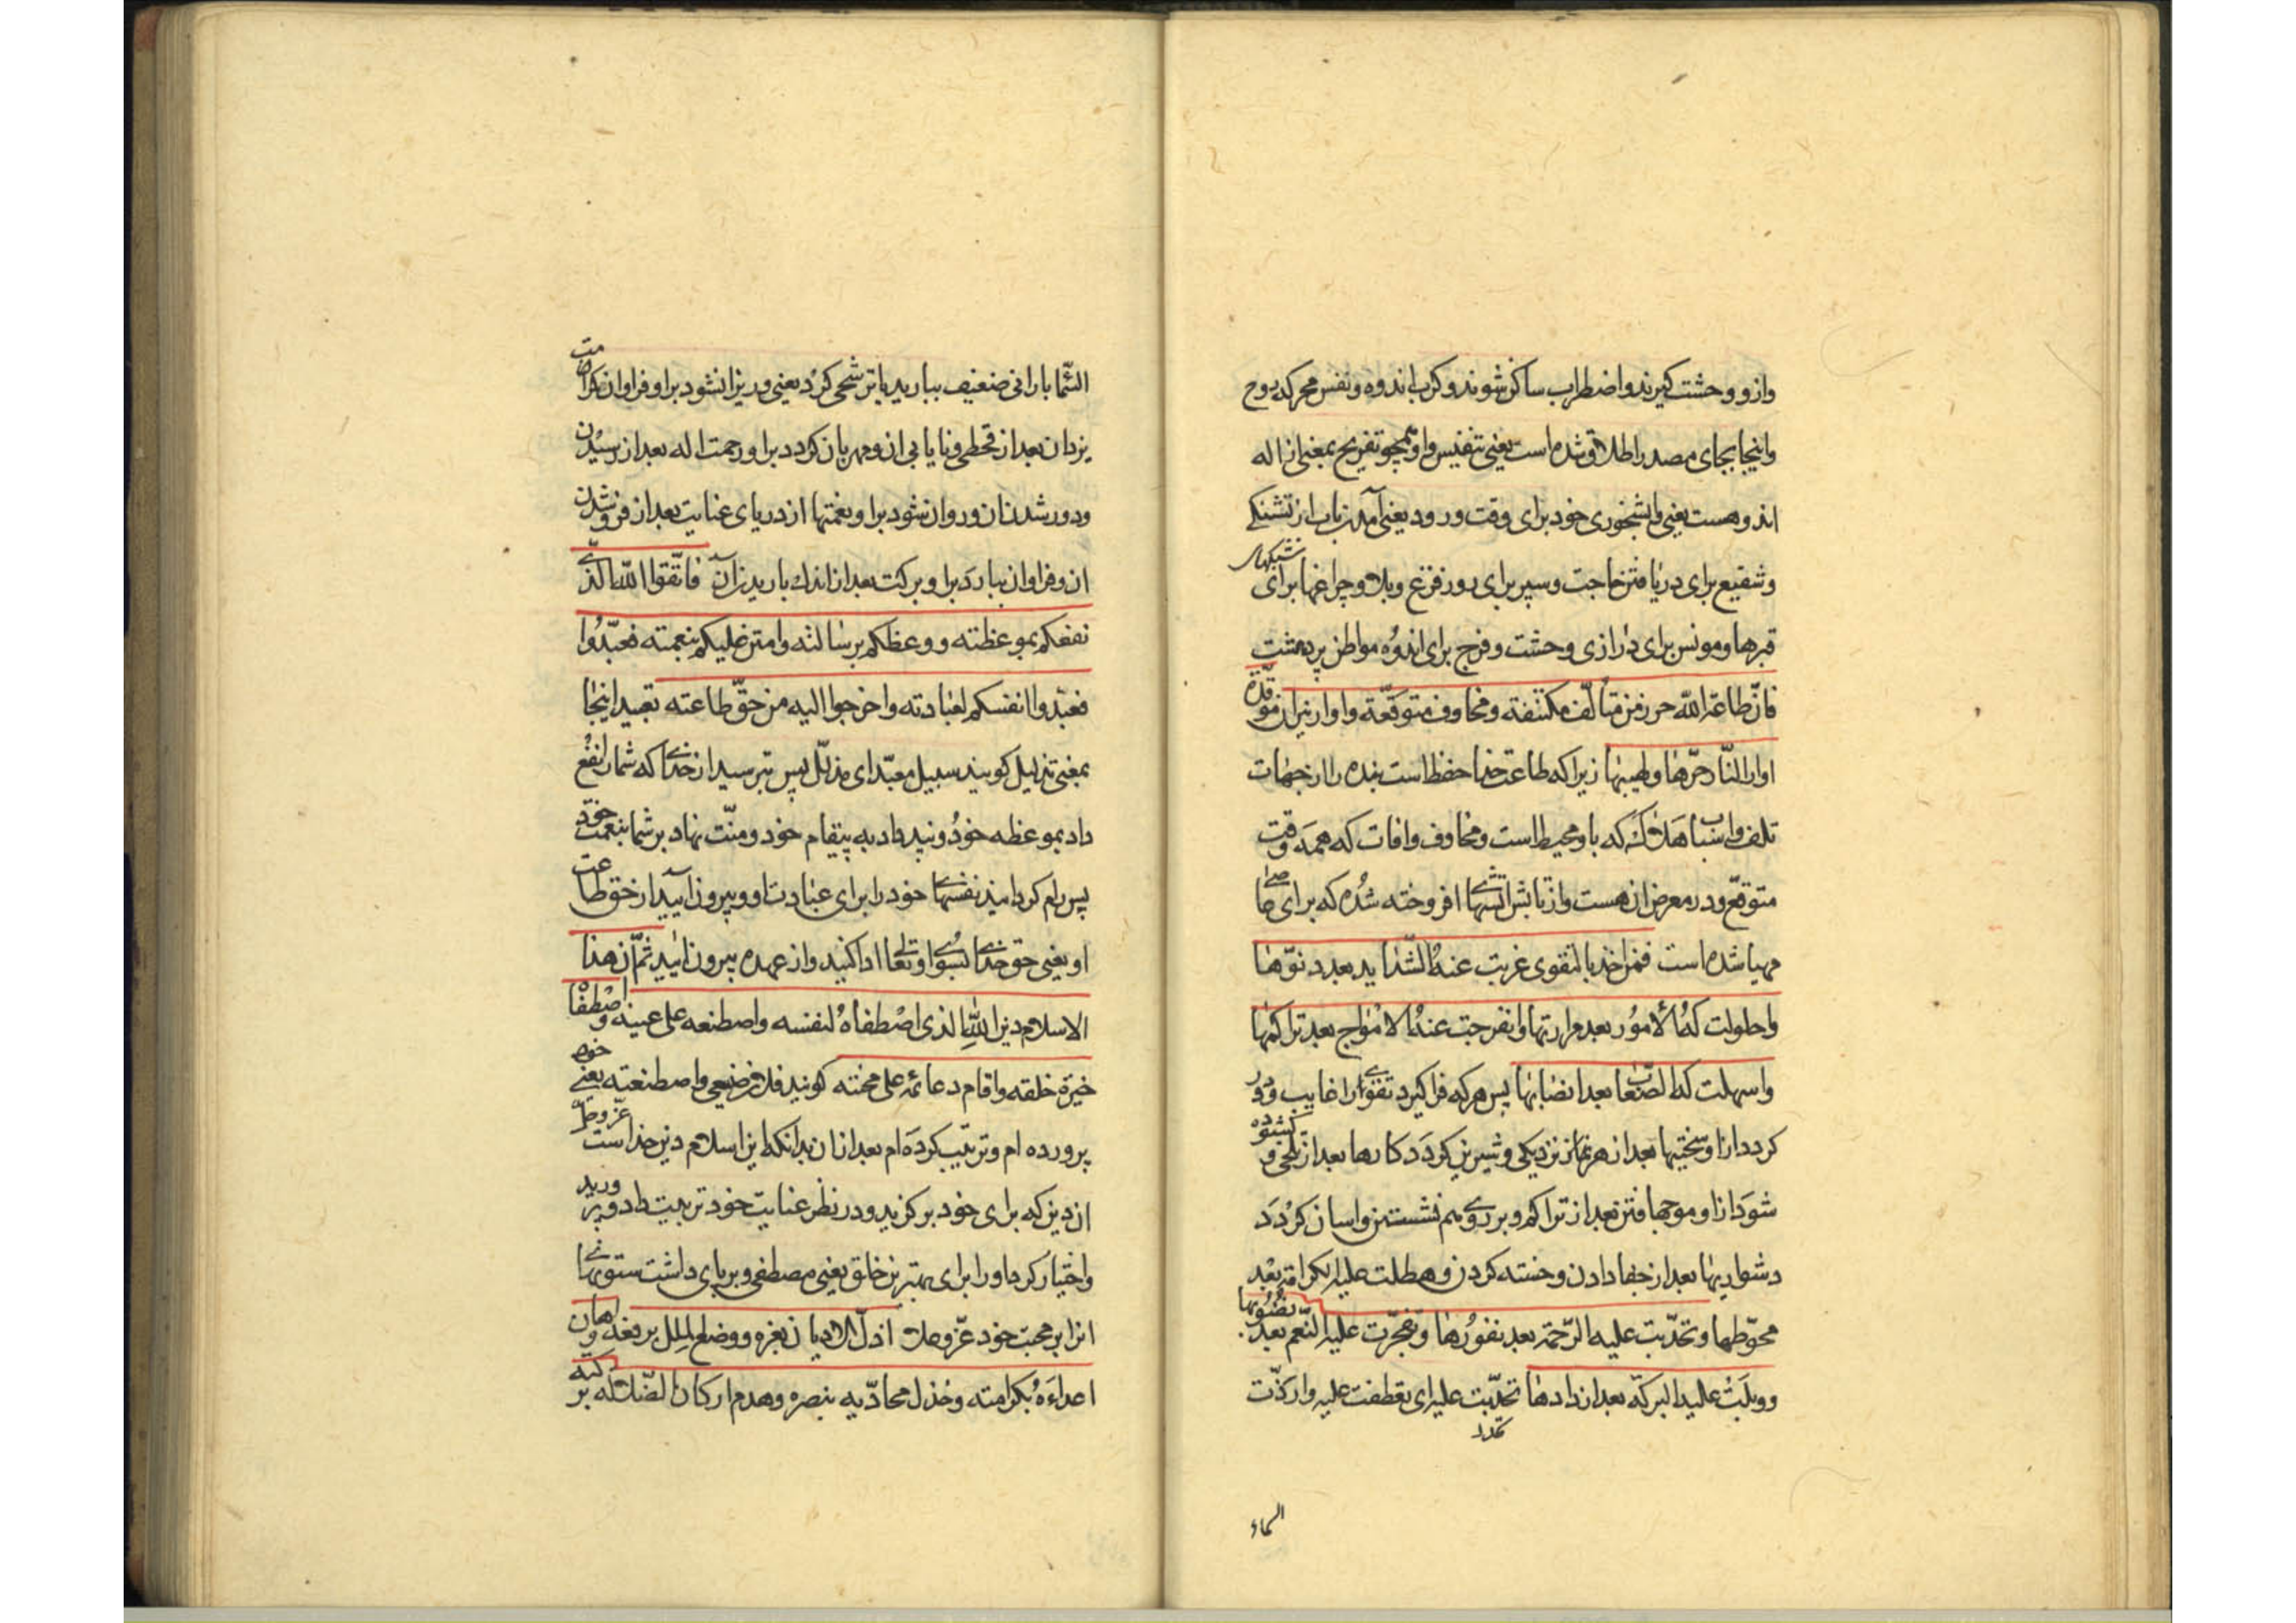 وازو وحشت گیرند و اضطراب ساکن شوند و کرب اندوه و نفس محرکه روح
واینجا بجای مصدر اطلاق شده است یعنی تنفیس واو همچو تفریح بمعنی ازاله
اندوهست یعنی وابشخوری خود برای وقت ورود یعنی آمدن باب از تشنکی
وشفیع برای دریافتن حاجت وسپر برای روز فزع وبلا وچراغها برای شبکهای
قبرها ومونس برای درازی وحشت وفرج برای اندوه مواطن پر دهشت
فانّ طاعة اللّه حرز من متالف مکتنفة ومخاوف متوقّعة واوار نیران موقدة
اوار النّار حرّها ولهیبها زیرا که طاعت خدا حفظ است بنده را از جهات
تلف واسباب هلاک که باو محیط است ومخاوف وافات که همه وقت
متوقع ودر معرض ان هست واز تابش اتشها افروخته شده که برای عاصی
مهیا شده است فمن اخذ بالتقوی غربت عنه الشّداید بعد دنوّها
واحلولت له الامور بعد مرارتها وانفرجت عنه الامواج بعد تراکمها
واسهلت له الصّعاب بعد انصابها پس هر که فراکیرد تقوی را غایب ودور
کردد ازاو سختیها بعد از نزدیکی وشیرین کردد کارها بعد از تلخی و کشوده
شود ازاو موجها فتن بعد از تراکم وبر روی هم نشستن واسان کردد
دشواریها بعد از جفا دادن وخسته کردن وهطلت علیه الکرامة بعد
قحوطها وتحدّبت علیه الرّحمة بعد نفورها وتفجّرت علیه النّعم بعد نضوبها
ووبلت علیه البرکة بعد ارذاذها تحدّبت علیه ای تعطفت علیه وارذّت
السماء
السّما بارانی ضعیف ببارید یا ترشحی کرد یعنی وریزان شود براو فراوان کرامت
یزدان بعد از قحطی ونایابی ان ومهربان کردد براو رحمت اله بعد از رسیدن
ودور شدن ان وروان شود براو نعمتها از دریای عنایت بعد از فرو شدن
ان وفراوان ببارد براو برکت بعد از اندک باریدن آن فاتّقوا اللّه الّذی
نفعکم بموعظته ووعظکم برسالته وامتنّ علیکم بنعمته فعبّدوا
فعبّدوا انفسکم لعبادته واخرجوا الیه من حقّ طاعته تعبید اینجا
بمعنی تذلیل کویند سبیل معبّد ای مذلّل پس بترسید از خدای که شمارا نفع
داد بموعظه خود وپند داد به پیغام خود ومنّت نهاد بر شما بنعمت خود
پس رام کردانید نفسهای خود را برای عبادت او وبیرون آیید از حق طاعت
او یعنی حق خدای بسوی او تعالی ادا کنید واز عهده بیرون ایید ثمّ ان هذا
الاسلام دین اللّه الذی اصطفاه لنفسه واصطنعه علی عینه واصطفاه
خیرة خلقه واقام دعائمه علی محبته کویند فلان صنیعی واصطنعته یعنی خود
پرورده ام وتربیت کرده ام بعد از ان بدانکه این اسلام دین خداست عزّ وجلّ
ان دین که برای خود برکزید ودر نظر عنایت خود تربیت داد وپرورید
واختیار کرد اورا برای بهترین خلق یعنی مصطفی وبرپای داشت ستونهای
انرا بر محبت خود عزّ وعلا اذلّ الادیان بعزه ووضع الملل برفعه واهان
اعداءه بکرامته وخذل محادّیه بنصره وهدم ارکان الضّلالة برکنه